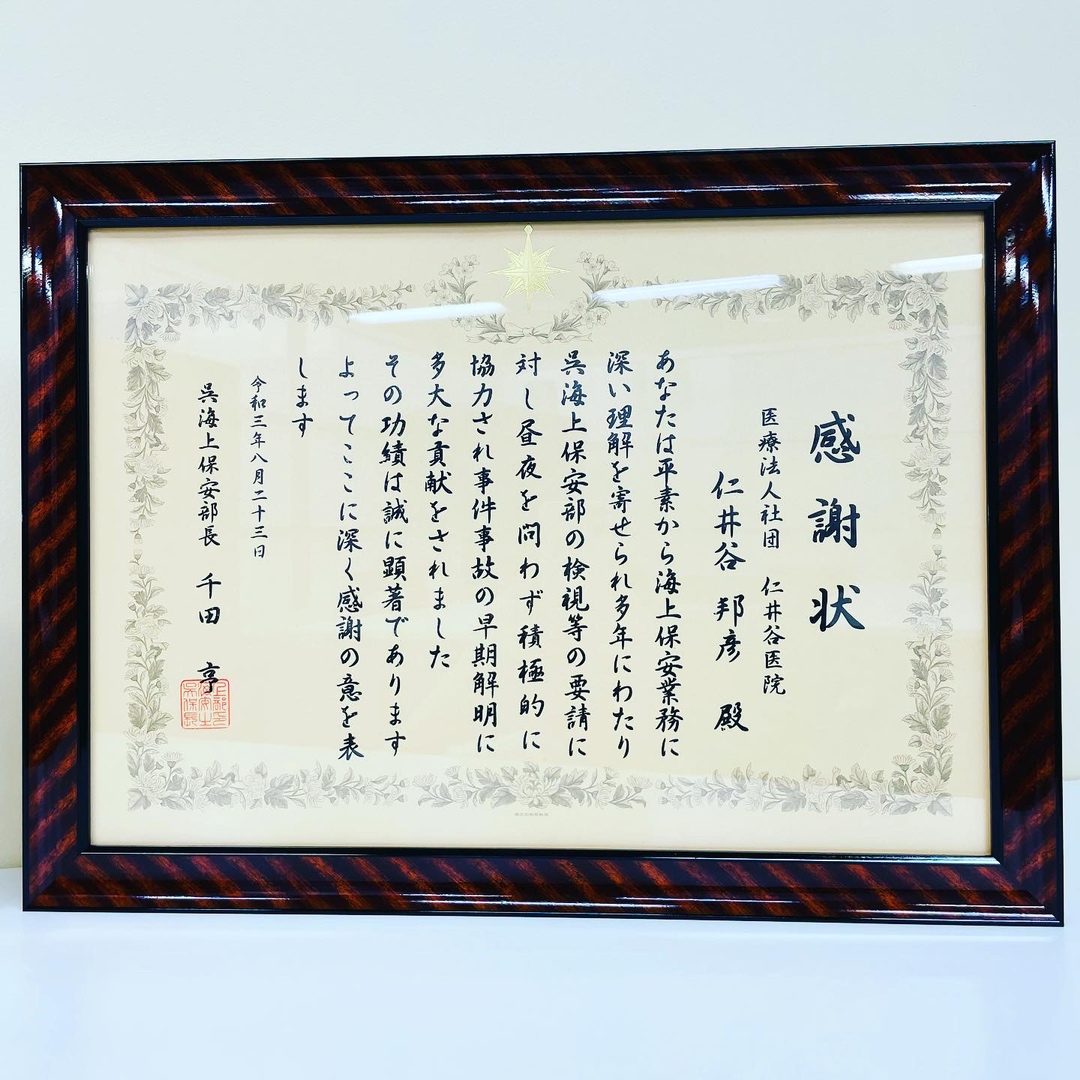 感謝状
医療法人社団 仁井谷医院
仁井谷 邦彦 殿
あなたは平素から海上保安業務に
深い理解を寄せられ多年にわたり
呉海上保安部の検視等の要請に
対し昼夜を問わず積極的に
協力され事件事故の早期解明に
多大な貢献をされました
その功績は誠に顕著であります
よってここに深く感謝の意を表
します
令和三年八月二十三日
呉海上保安部長 千田 亨